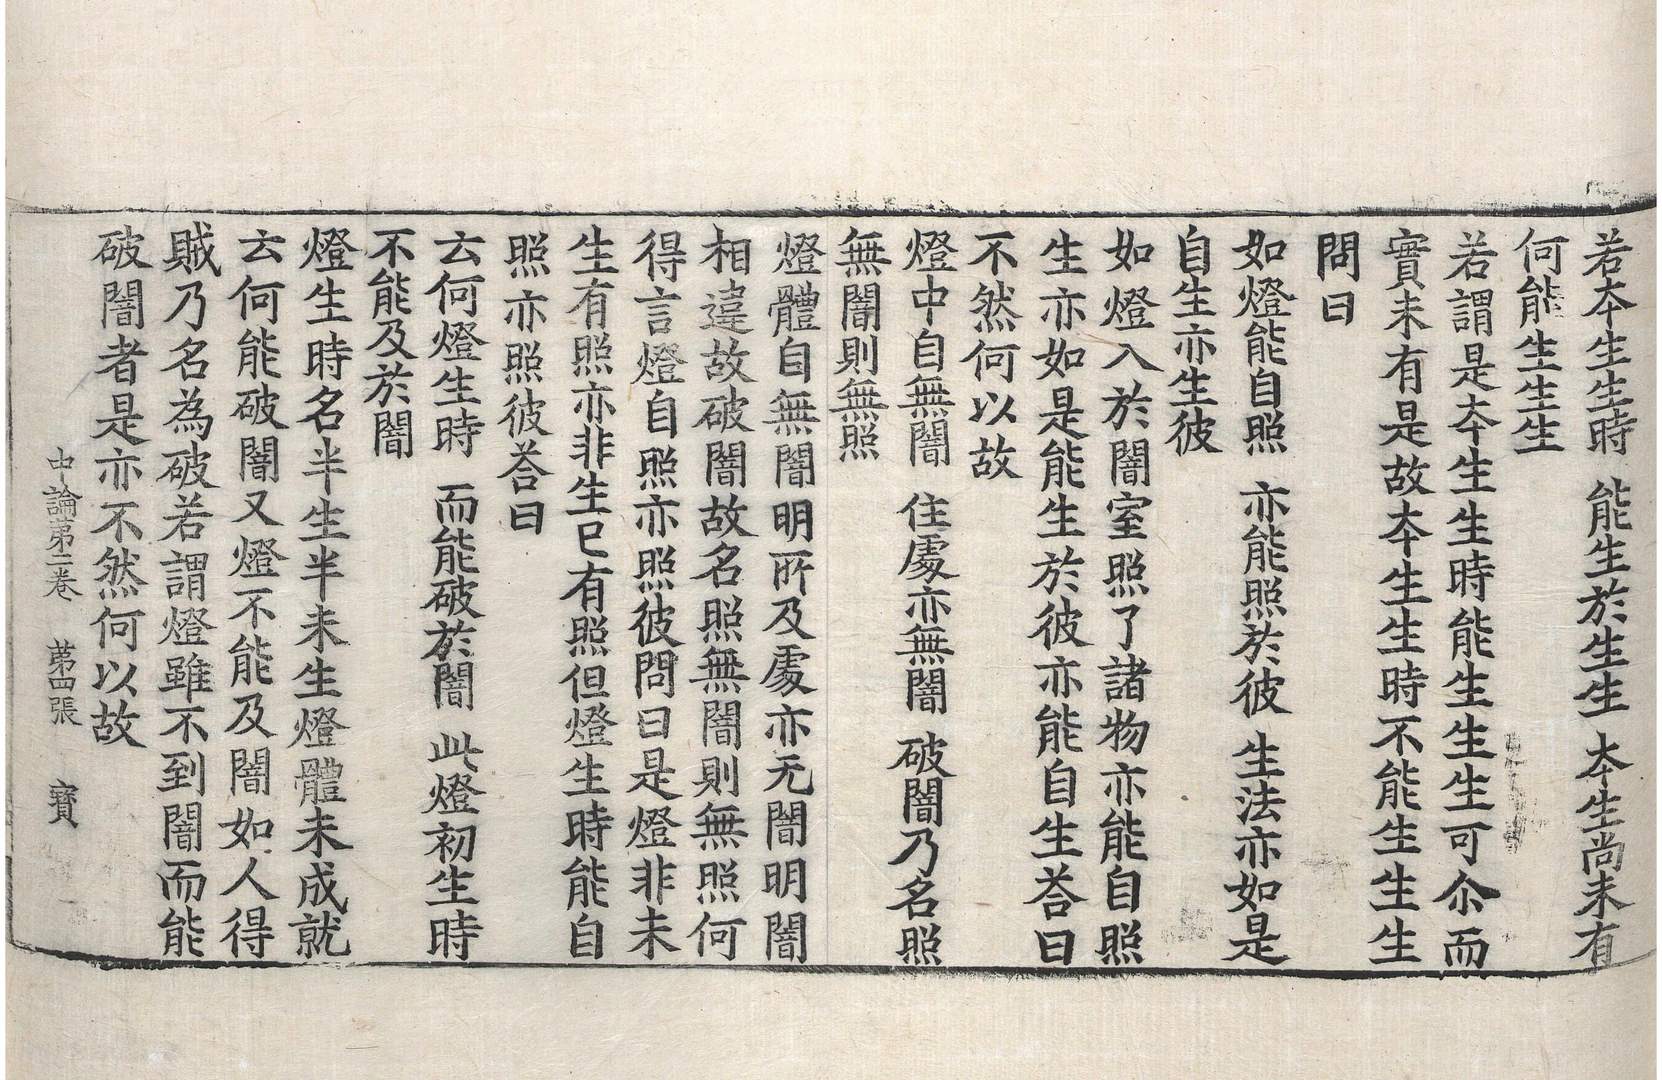 若夲生生時 能生於生生 夲生尚未有
何能生生生
若謂是夲生生時能生生生可尒而
實未有是故夲生生時不能生生生
問曰
如燈能自照 亦能照於彼 生法亦如是
自生亦生彼
如燈入於闇室照了諸物亦能自照
生亦如是能生於彼亦能自生荅曰
不然何以故
燈中自無闇 住處亦無闇 破闇乃名照
無闇則無照
燈體自無闇明所及處亦无闇明闇
相違故破闇故名照無闇則無照何
得言燈自照亦照彼問曰是燈非未
生有照亦非生已有照但燈生時能自
照亦照彼荅曰
云何燈生時 而能破於闇 此燈初生時
不能及於闇
燈生時名半生半未生燈體未成就
云何能破闇又燈不能及闇如人得
賊乃名為破若謂燈雖不到闇而能
破闇者是亦不然何以故
中論第二卷 第四張 寳